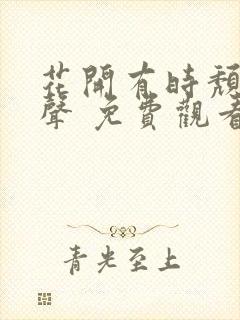 花開有時頹
聲 免費觀看
青光至上